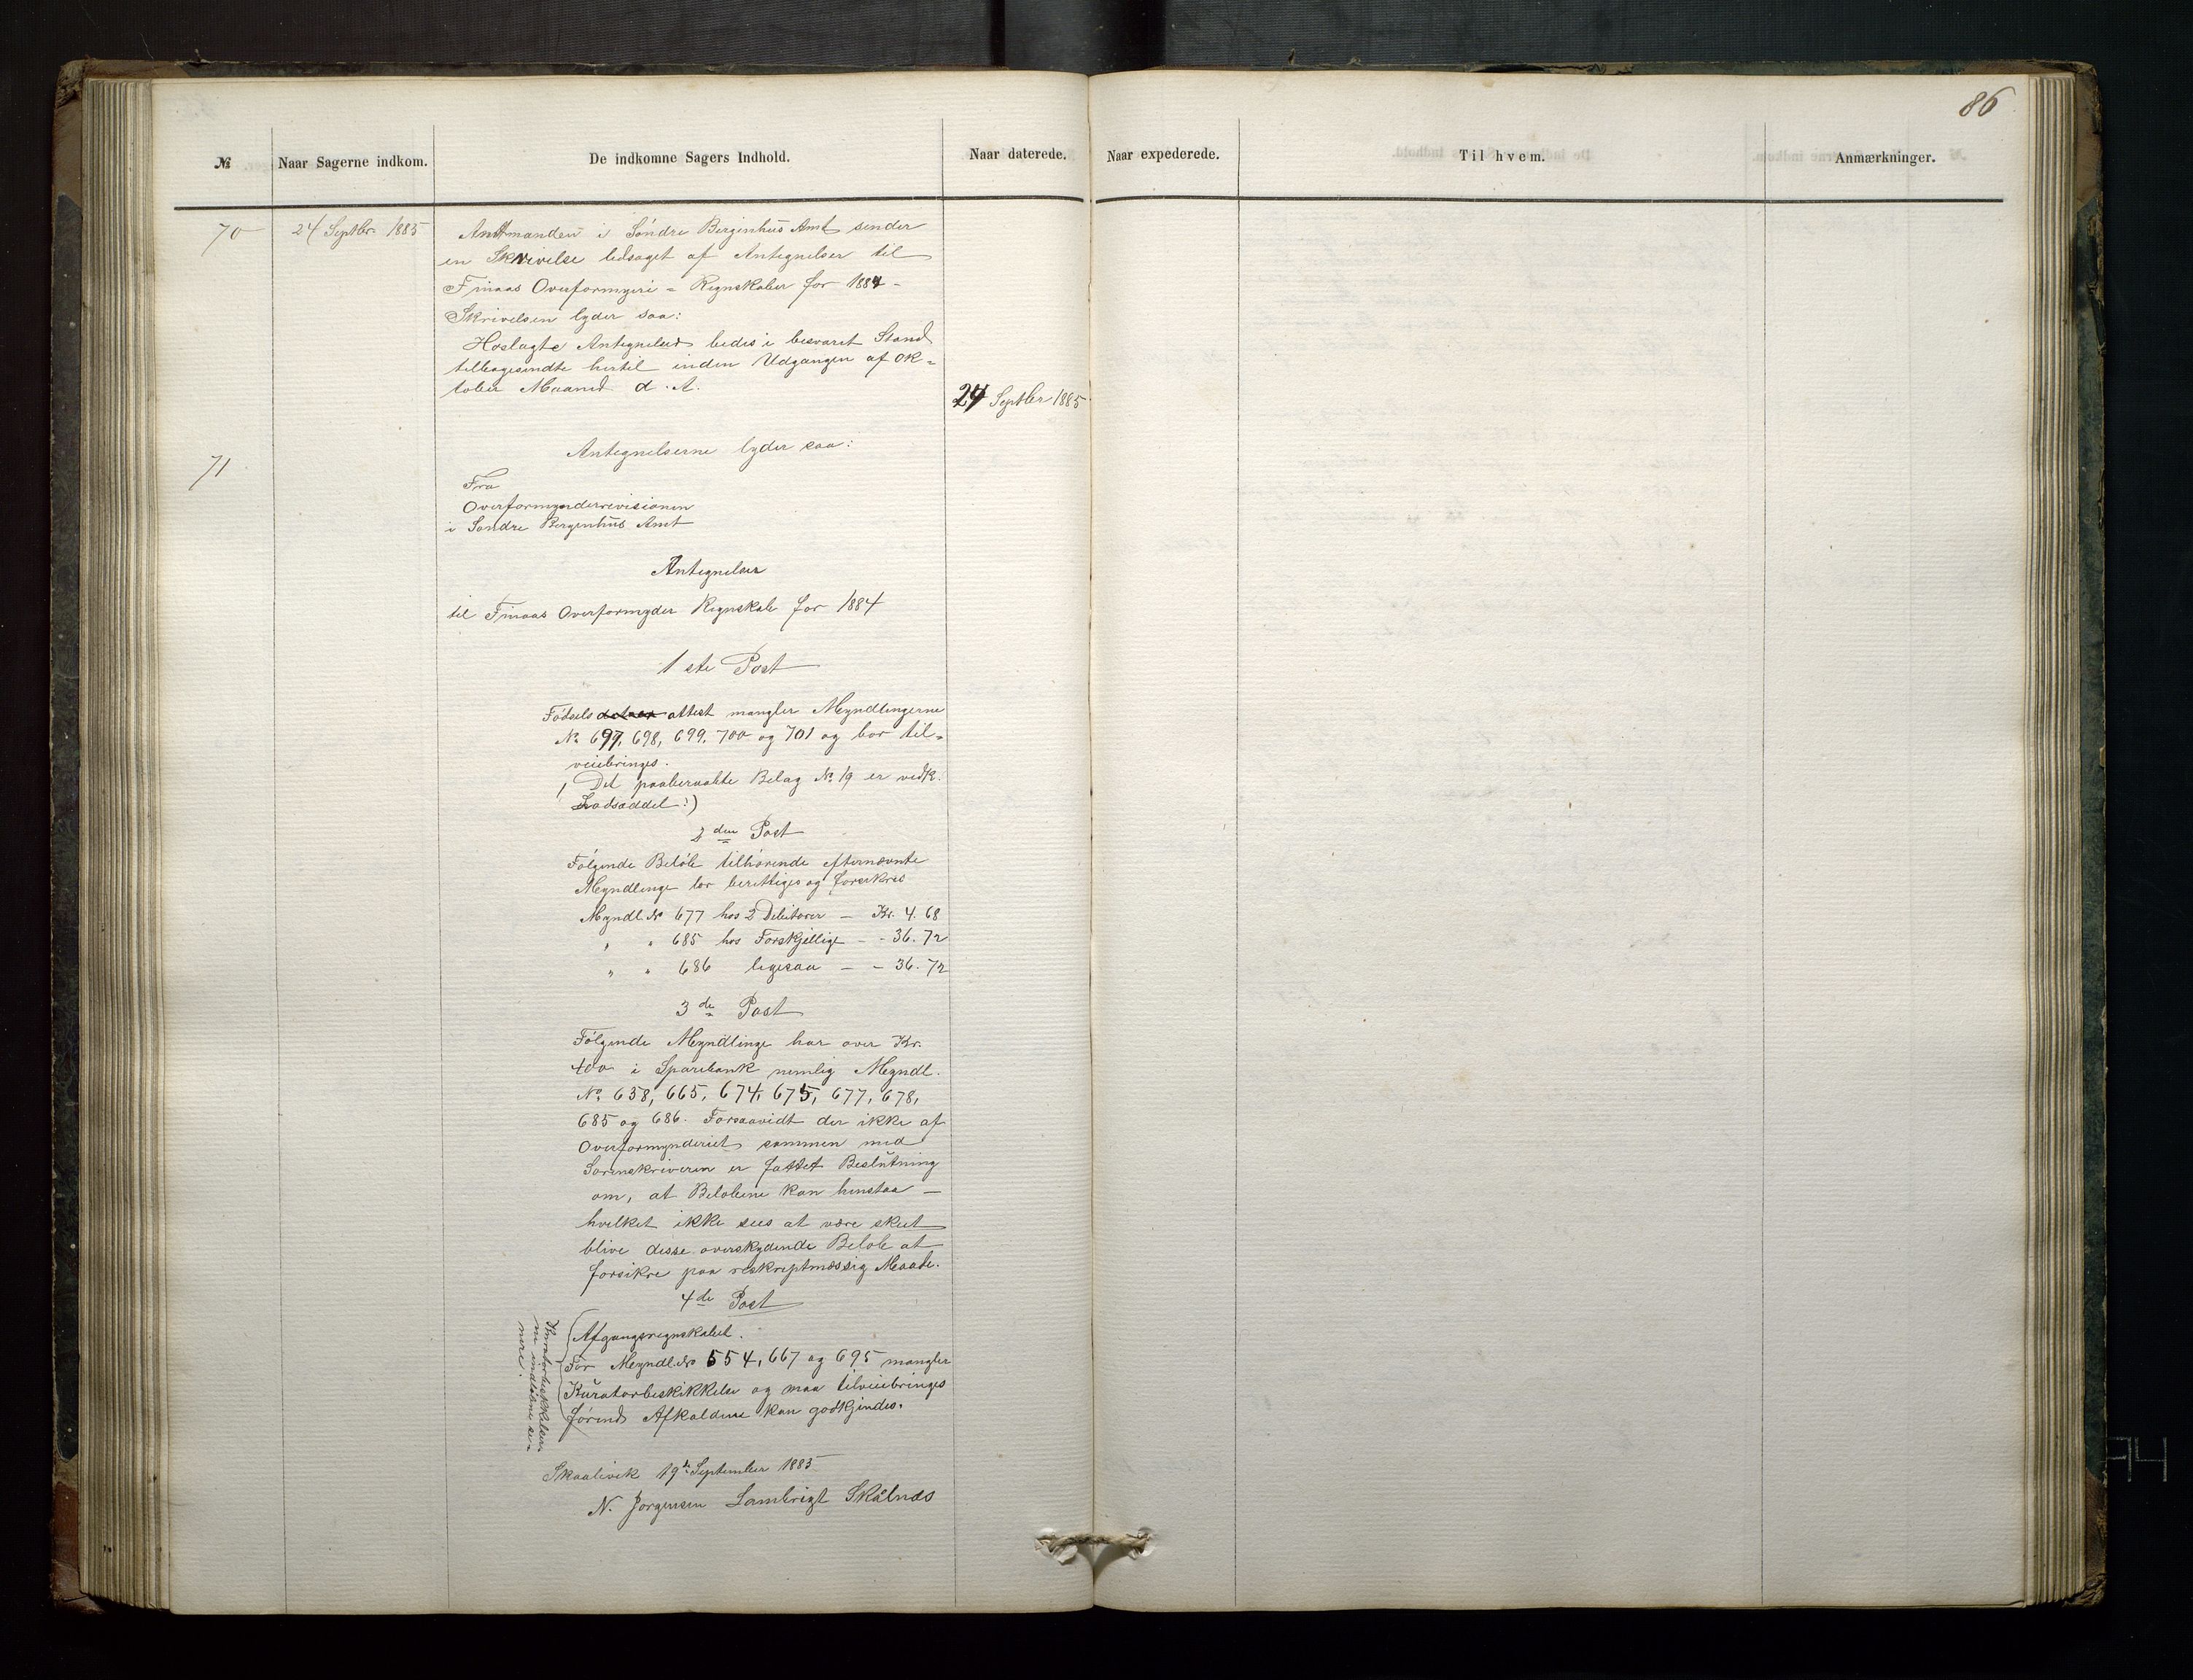 86
№
Naar Sagerne indkom.
De indkomne Sagers Indhold.
Naar daterede.
Naar expederede.
Til hvem.
Anmærkninger.
70
24 Septbr. 1885
Amtmanden i Søndre Bergenhus Amt sender
en Skrivelse ledsaget af Antegnelser til
Finaas Overformyeri = Regnskaber for 1884 -
Skrivelsen lyder saa:
Hoslagte Antegnelser bedes i besvaret Stand
tilbagesendte hertil inden Udgangen af Ok=
tober Maaned d. A.
24 Septber 1885
71
Antegnelserne lyder saa:
Fra
Overformynderrevisionen
i Søndre Bergenhus Amt
Antegnelser
til Finaas Overformyder Regnskab for 1884
1ste Post
Fødsels attest mangler Myndlingerne
No 697, 698, 699, 700 og 701 og bør til=
veiebringes.
Det paaberaabte Belag No 19 er vedk.
Lodseddel:)
2den Post
Følgende Beløb tilhørende efternævnte
Myndlinge bør berettiges og forsikres
Myndl. No 677 hos 2 Debitorer — Kr. 4.68
" " 685 hos Forskjellige - - 36.72
" " 686 ligesaa — - 36.72
3de Post
Følgende Myndlinge har over Kr.
400 i Sparebank nemlig Myndl.
No. 658, 665, 674, 675, 677, 678,
685 og 686. Forsaavidt der ikke af
Overformynderiet sammen med
Sorenskriveren er fattet Beslutning
om, at Beløbene kan henstaa —
hvilket ikke sees at være skeet
blive disse overskydende Beløb at
forsikre paa reskreptmæssig Maade.
4de Post
Afgangsregnskabet.
For Myndl. No 554, 667 og 695 mangler
Kuratorbeskikkelse og maa tilveiebringes
førend Afkaldene kan godkjendes.
Kuratorbeskikkelser
ne indløbne se=
nere.
Skaalevik 19de September 1885
N. Jørgensen Lambrigt Skålnæs